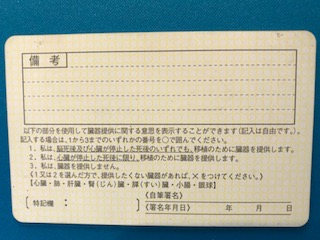 備考
以下の部分を使用して臓器提供に関する意思を表示することができます（記入は自由です。）
記入する場合は、1から3までのいずれかの番号を○で囲んでください。
1．私は、脳死後及び心臓が停止した死後のいずれでも、移植のために臓器を提供します。
2．私は、心臓が停止した死後に限り、移植のために臓器を提供します。
3．私は、臓器を提供しません。
《1又は2を選んだ方で、提供したくない臓器があれば、×をつけてください。》
【心臓・肺・肝臓・腎（じん）臓・膵（すい）臓・小腸・眼球】
〔特記欄：　〕
《自筆署名》
《署名年月日》　年　月　日